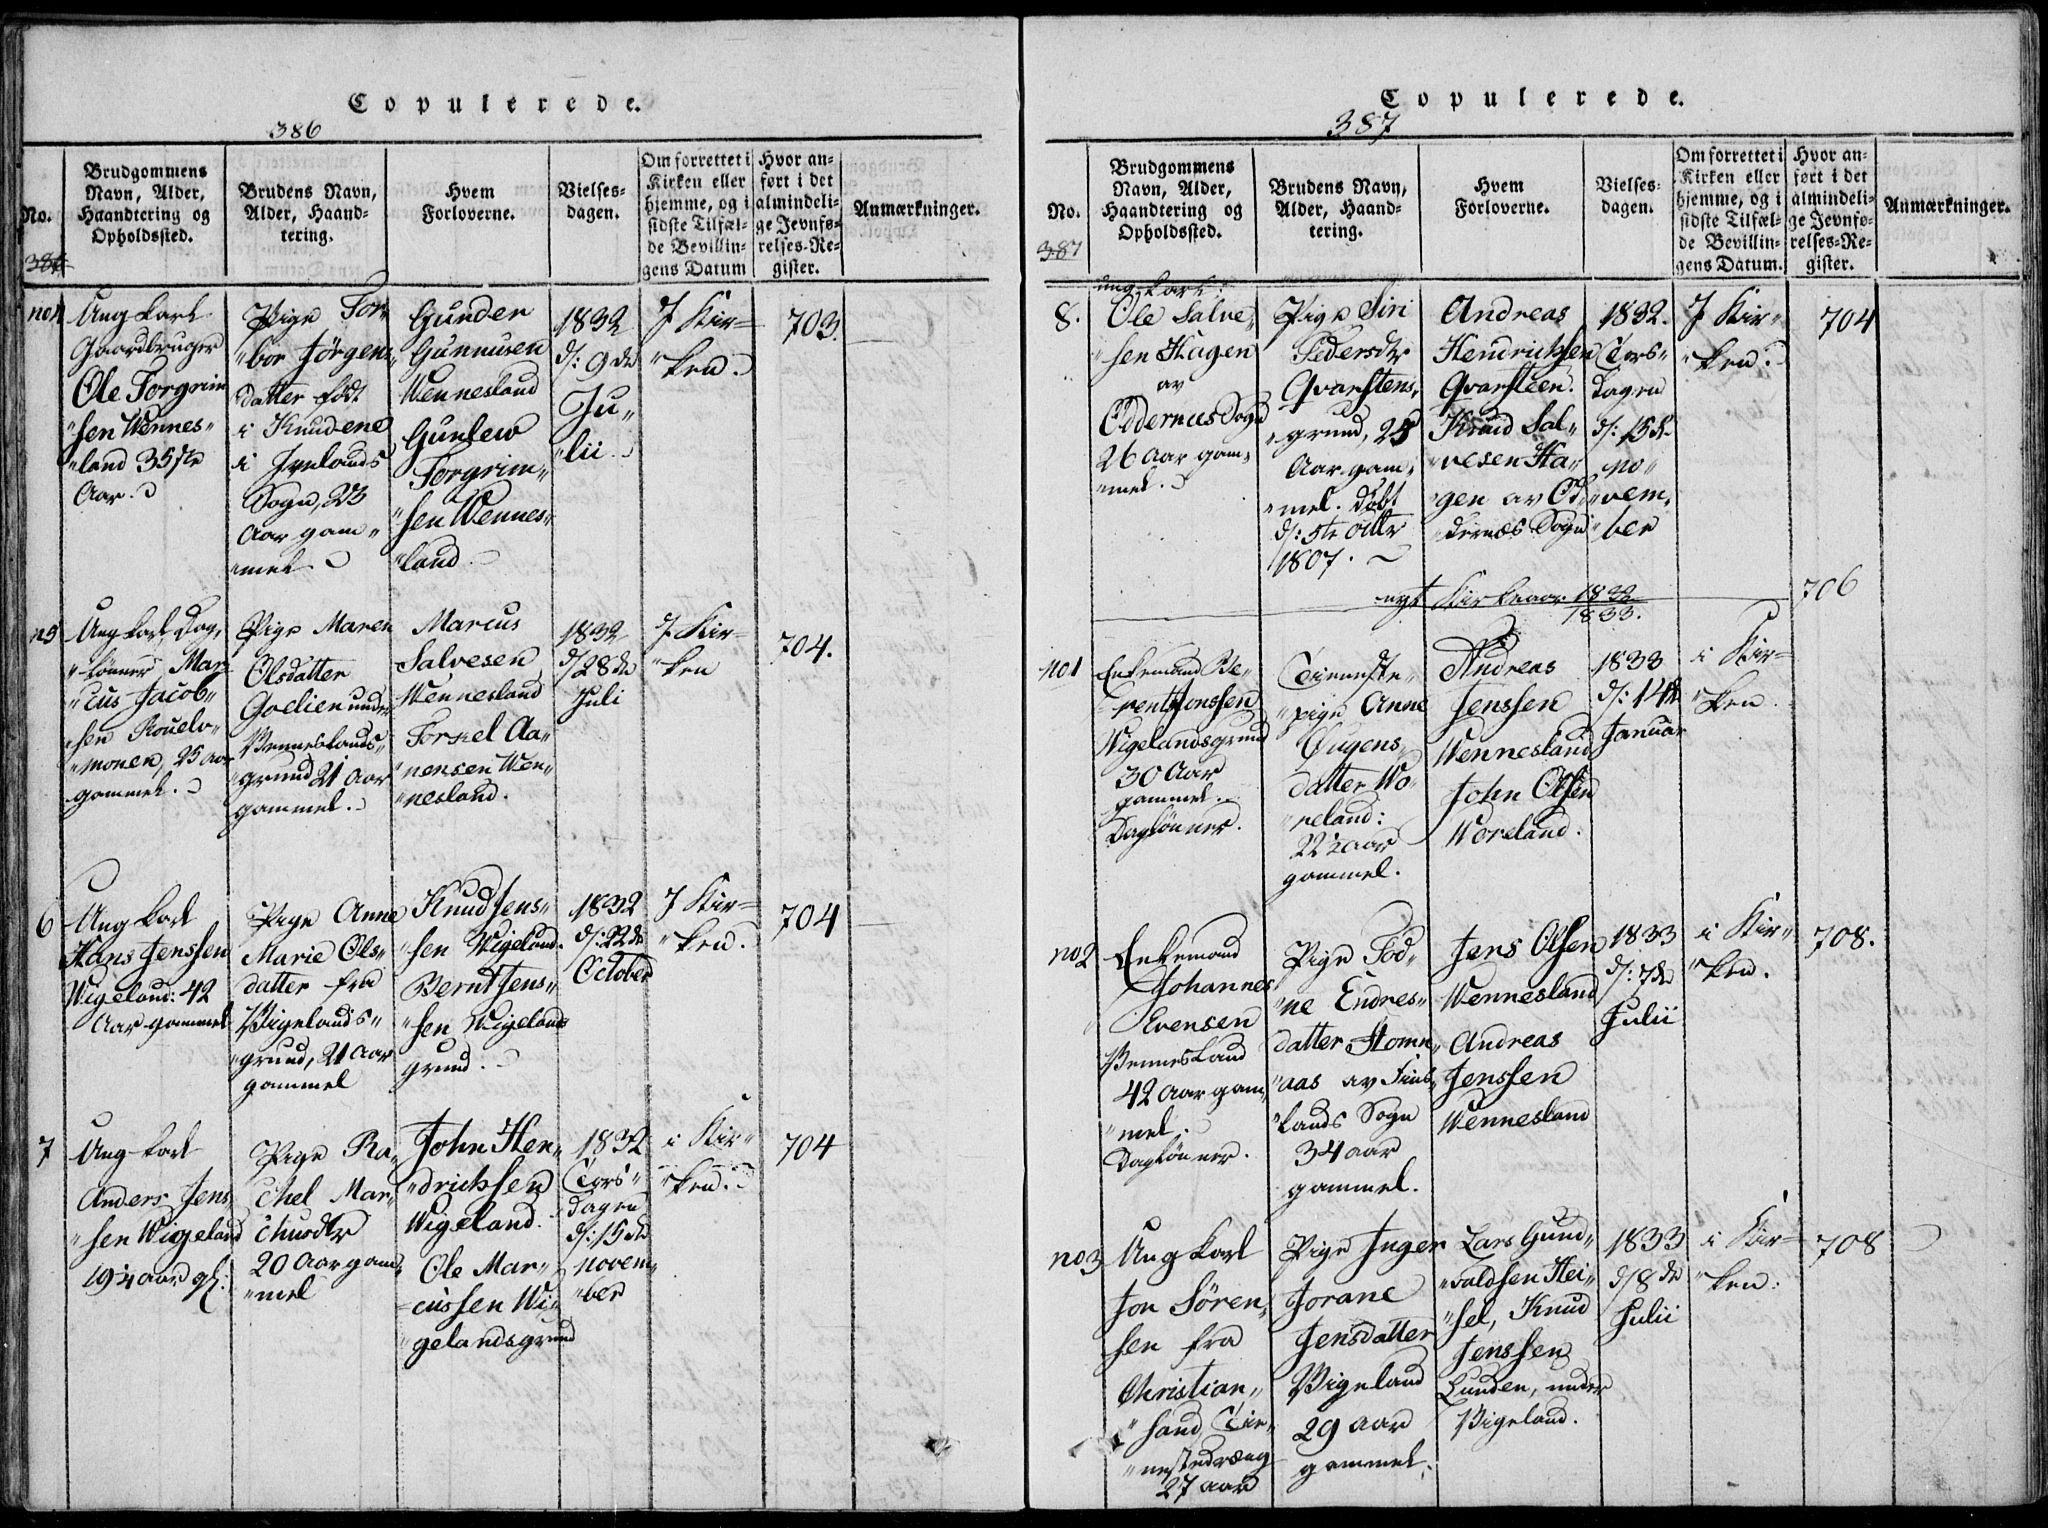 Copulerede.
386
No.
386
Brudgommens
Navn, Alder,
Haandtering og
Opholdssted.
Brudens Navn,
Alder, Haand-
tering.
Hvem
Forloverne.
Vielses-
dagen.
Om forrettet i
Kirken eller
hjemme, og i
sidste Tilfæl-
de Bevillin-
gens Datum
Hvor an-
ført i det
almindeli-
ge Jevnfø-
relses-Re-
gister.
Anmærkninger.
no4
Ung karl
Gaardbruger
Ole Torgrim
"sen Wennes"
"land 35 ½te
Aar.
Pige Tor"
"bor Jörgens"
datter født
i Knudene
i Ivelands
Sogn, 23
Aar gam"
"mel
Gunder
Gunnusen
Wennesland
Gunlew
Torgrim"
"sen Wennes"
"land.
1832
d/: 9de
Ju"
"lii.
I Kir="
"ken.
703.
n5
Ung karl, Dag"
"lønner Mar"
"cus Jacob"
"sen Rouelo"
"monen, 25 aar
gammel.
Pige Maren
Olsdatter
Goelien under
Venneslands"
"grund 21 Aar
gammel.
Marcus
Salvesen
Wennesland
Torkel Aa"
"nensen Wen"
"nesland.
1832
d/28de
Juli
I Kir="
"ken
704.
6
Ung karl
Hans Jenssen
Wigeland: 42
Aar gammel
Pige Anne
Marie Ols"
datter fra
Vigelands"
"grund, 21 Aar
gammel
Knud Jens"
"sen Wigeland.
Bernt Jens"
"sen Wigelands
grund.
1832
d/: 22de
October
I Kir="
"ken.
704
7
Ung karl
Anders Jens
"sen Wigeland
19¼ aar gl:
Pige Ra"
chel Mar"
chusdtr
20 Aar gam"
"mel
John Hen"
"drichsen
Wigeland.
Ole Mar"
"cussen Wi"
"gelandsgrund
1832
Tors"
dagen
d/: 15de
novem"
"ber
i Kir"
"ken.
704
Copulerede.
387
No.
387
Brudgommens
Navn, Alder,
Haandtering og
Opholdssted.
Brudens Navn,
Alder, Haand-
tering.
Hvem
Forloverne.
Vielses-
dagen.
Om forrettet i
Kirken eller
hjemme, og i
sidste Tilfæl-
de Bevillin-
gens Datum.
Hvor an-
ført i det
almindeli-
ge Jevnfø-
relses-Re-
gister.
Anmærkninger.
8.
ung karl:
Ole Salve"
"sen Hagen
av
Oddernes Sogn
26 Aar gam"
"mel.
Pige Siri
Pedersdtr
Qvarstens"
"grund, 25
Aar gam"
"mel. Døbt
d/: 5te
1807.
Andreas
Hendrichsen
Qvarsteen.
Knud Sal"
"vesen Ha"
"gen av Od"
"dernes Sogn
1832.
Tors"
dagen
d/: 15de
no"
"vem"
"ber
I Kir"
"ken.
704
nyt Kirkeaar 1832
1833.
706
no1
Enkemand Be"
"rent Jonssen
Wigelandsgrund
30 Aar
gammel.
Daglønner.
Tieneste"
"pige Anne
Øugens"
datter Wo"
"reland:
22½ aar
gammel.
Andreas
Jenssen
Wennesland
John Olsen
Woreland.
1833
d/: 14de
Januar
i Kir="
"ken.
no2
Enkemand
Johannes
Evensen
Vennesland
42 Aar gam"
"mel.
Daglønner.
Pige Tod"
"ne Endres"
datter Homm"
"aas av Fins"
"lands Sogn
34 aar
gammel.
Jens Olsen
Wennesland
Andreas
Jenssen
Wennesland
1833
d/: 7de
Julii
i Kir"
"ken.
708.
no3
Ung karl
Jon Sören"
sen fra
Christian"
"sand, Tie"
"nestedræng
27 aar
Pige Inger
Jorane
Jensdatter
Vigeland
29 aar
gammel.
Lars Gund"
"valdsen Hei"
"sel, Knud
Jenssen
Lunden, under
Vigeland.
1833
d/8de
Julii
i Kir="
"ken.
708